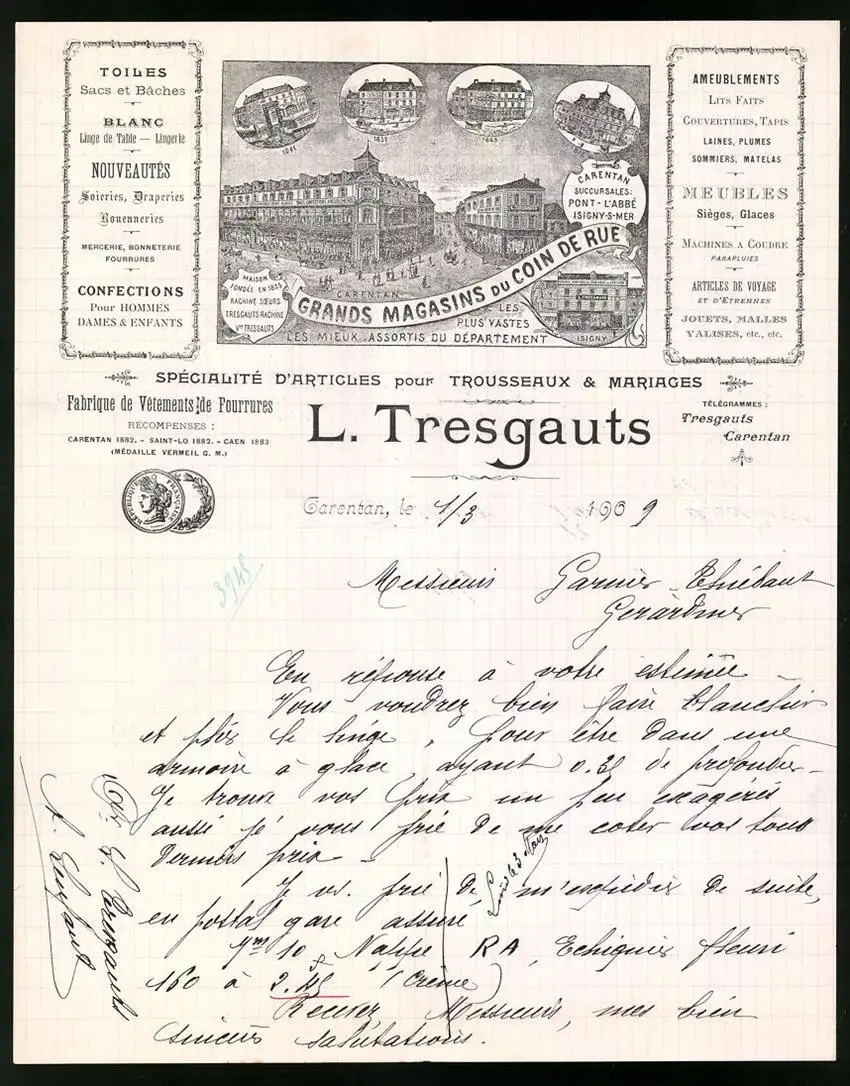 TOILES
Sacs et Bâches
BLANC
Linge de Table — Lingerie
NOUVEAUTÉS
Soieries, Draperies
Rouenneries
MERCERIE, BONNETERIE
FOURRURES
CONFECTIONS
Pour HOMMES
DAMES & ENFANTS
1855
CARENTAN
SUCCURSALES:
PONT-L'ABBÉ
ISIGNY-S-MER
MAISON
FONDÉE EN 1835
RACHINE SŒURS
TRESGAUTS RACHINE
Vve TRESGAUTS
CARENTAN
GRANDS MAGASINS DU COIN DE RUE
LES
PLUS VASTES
LES MIEUX ASSORTIS DU DÉPARTEMENT
ISIGNY
AMEUBLEMENTS
LITS FAITS
COUVERTURES, TAPIS
LAINES, PLUMES
SOMMIERS, MATELAS
MEUBLES
Sièges, Glaces
MACHINES A COUDRE
PARAPLUIES
ARTICLES DE VOYAGE
ET D'ETRENNES
JOUETS, MALLES
VALISES, etc., etc.
SPÉCIALITÉ D'ARTICLES pour TROUSSEAUX & MARIAGES
Fabrique de Vêtements de Fourrures
RÉCOMPENSES :
CARENTAN 1882. - SAINT-LO 1882. - CAEN 1883
(MÉDAILLE VERMEIL G. M.)
RÉPUBLIQUE FRANÇAISE
L. Tresgauts
TÉLÉGRAMMES :
Tresgauts
Carentan
Carentan, le 1/3 1909
3948
Messieurs Garnier Thiébaut
Gerardmer
En réponse à votre estimée
Vous voudrez bien faire blanchir
et pliés le linge, pour être dans une
armoire à glace, ayant 0.35 de profondeur
Je trouve vos prix un peu exagerés
aussi je vous prie de me coter vos tous
derniers prix -
J vs. prie de m'expédier de suite,
en postal gare assuré
10 Nappe RA, Echiquier fleuri
160 à 2.45 (Crème)
Recevez Messieurs, mes bien
sincères salutations.
L. Tresgauts